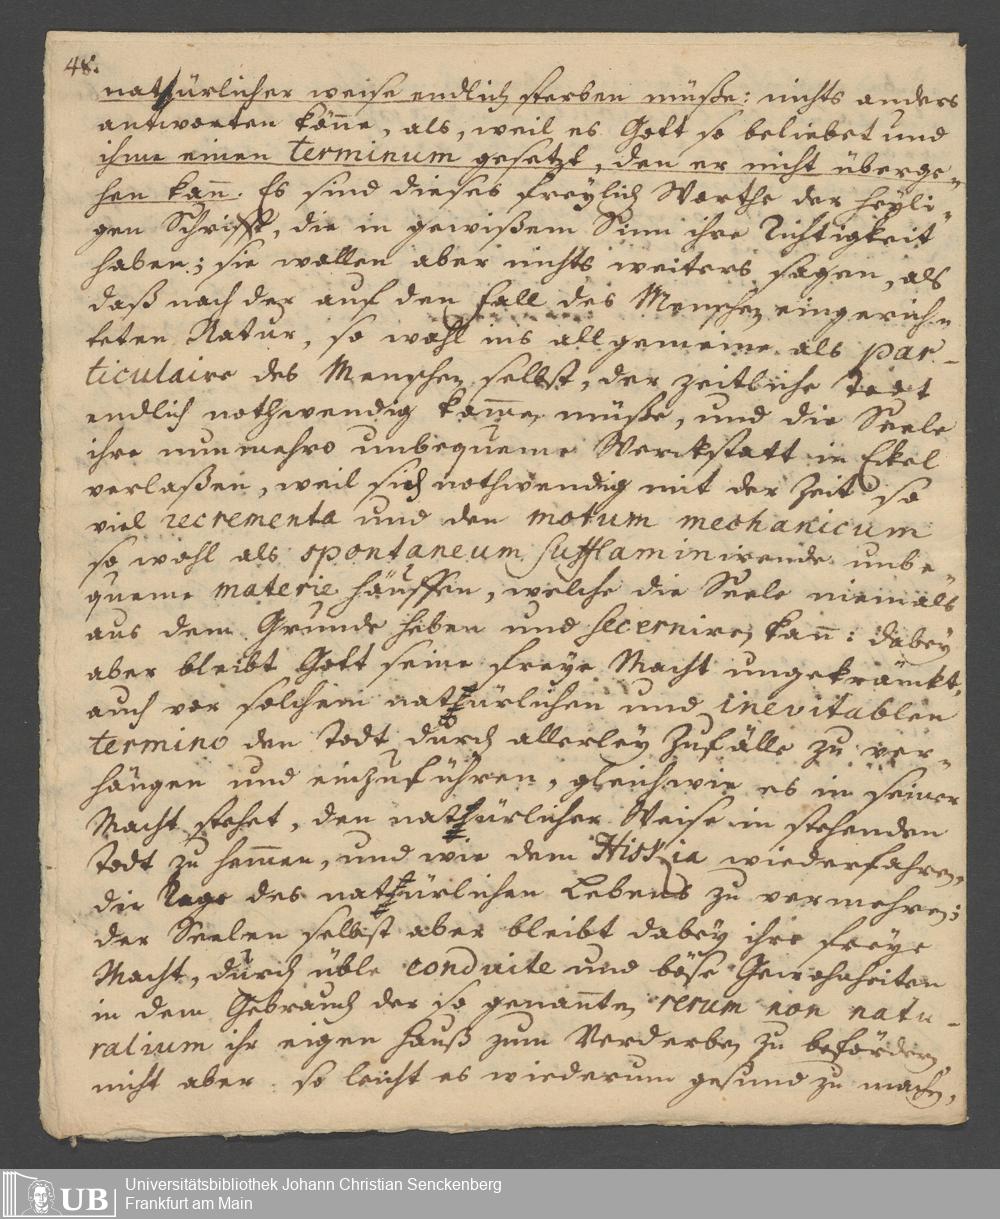 48.
natürlicher weise endlich sterben müße: nichts anders
antworten kön̄e, als, weil es Gott so beliebet und
ihme einen terminum gesetzt, den er nicht überge-
hen kan̄. Es sind dieses freylich Worthe der heyli-
gen Schrifft, die in gewißem Sinn ihre Richtigkeit
haben; sie wollen aber nichts weiters sagen, als
daß nach der auf den Fall des Menschen eingerich-
teten Natur, so wohl ins allgemeine als par-
ticulaire des Menschen selbst, der zeitliche Todt
endlich nothwendig kom̄en müße, und die Seele
ihre nunmehro unbequeme Werckstatt in Eckel
verlaßen, weil sich nothwendig mit der Zeit so
viel recrementa und den motum mechanicum
so wohl als spontaneum sufflaminirende unbe-
queme materie häuffen, welche die Seele niemals
aus dem Grunde heben und secerniren kan̄: dabey
aber bleibt Gott seine freye Macht ungekränkt,
auch vor solchem natürlichen und inevitablen
termino den Todt durch allerley Zufälle zu ver-
hängen und einzuführen, gleichwie es in seiner
Macht stehet, den natürlicher Weise in stehenden
Todt zu hem̄en, und wie dem Hiskia wiederfahren,
die Tage des natürlichen Lebens zu vermehren;
der Seelen selbst aber bleibt dabey ihre freye
Macht, durch üble conduite und böse Gewohnheiten
in dem Gebrauch der so genan̄ten rerum non natu-
ralium ihr eigen Hauß zum Verderben zu befördern,
nicht aber so leicht es wiederum gesund zu machen,
UB
Universitätsbibliothek Johann Christian Senckenberg
Frankfurt am Main